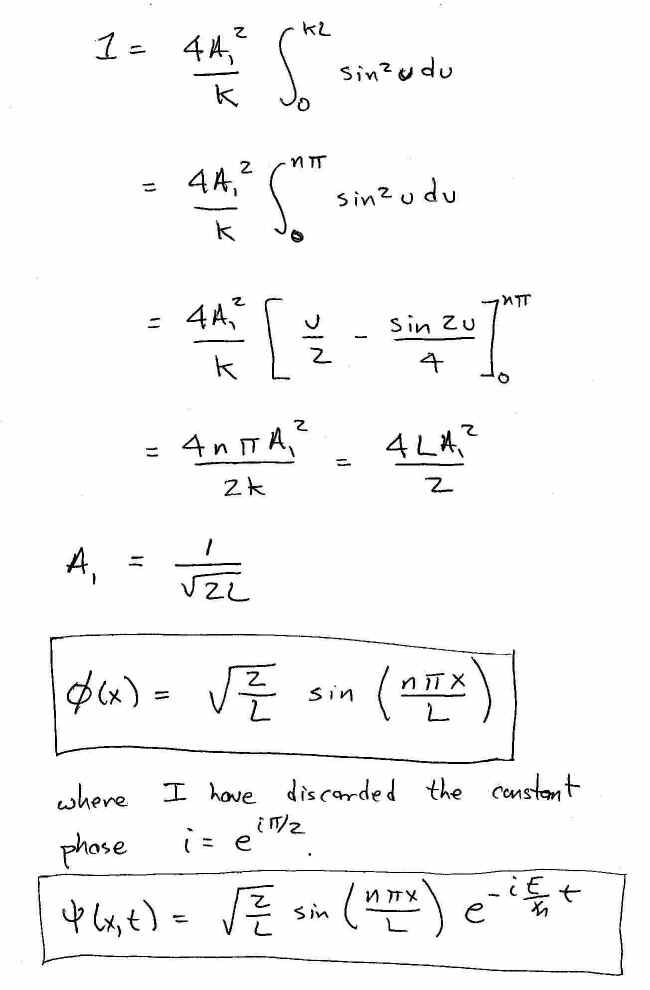 1 = 4A₁²/k ∫₀^{kL} sin² u du
= 4A₁²/k ∫₀^{nπ} sin² u du
= 4A₁²/k [ u/2 - sin 2u/4 ]₀^{nπ}
= 4nπA₁²/2k = 4LA₁²/2
A₁ = 1/√2L
ϕ(x) = √2/L sin (nπx/L)
where I have discarded the constant
phase i = e^{iπ/2}.
ψ(x,t) = √2/L sin (nπx/L) e^{-i E/ħ t}